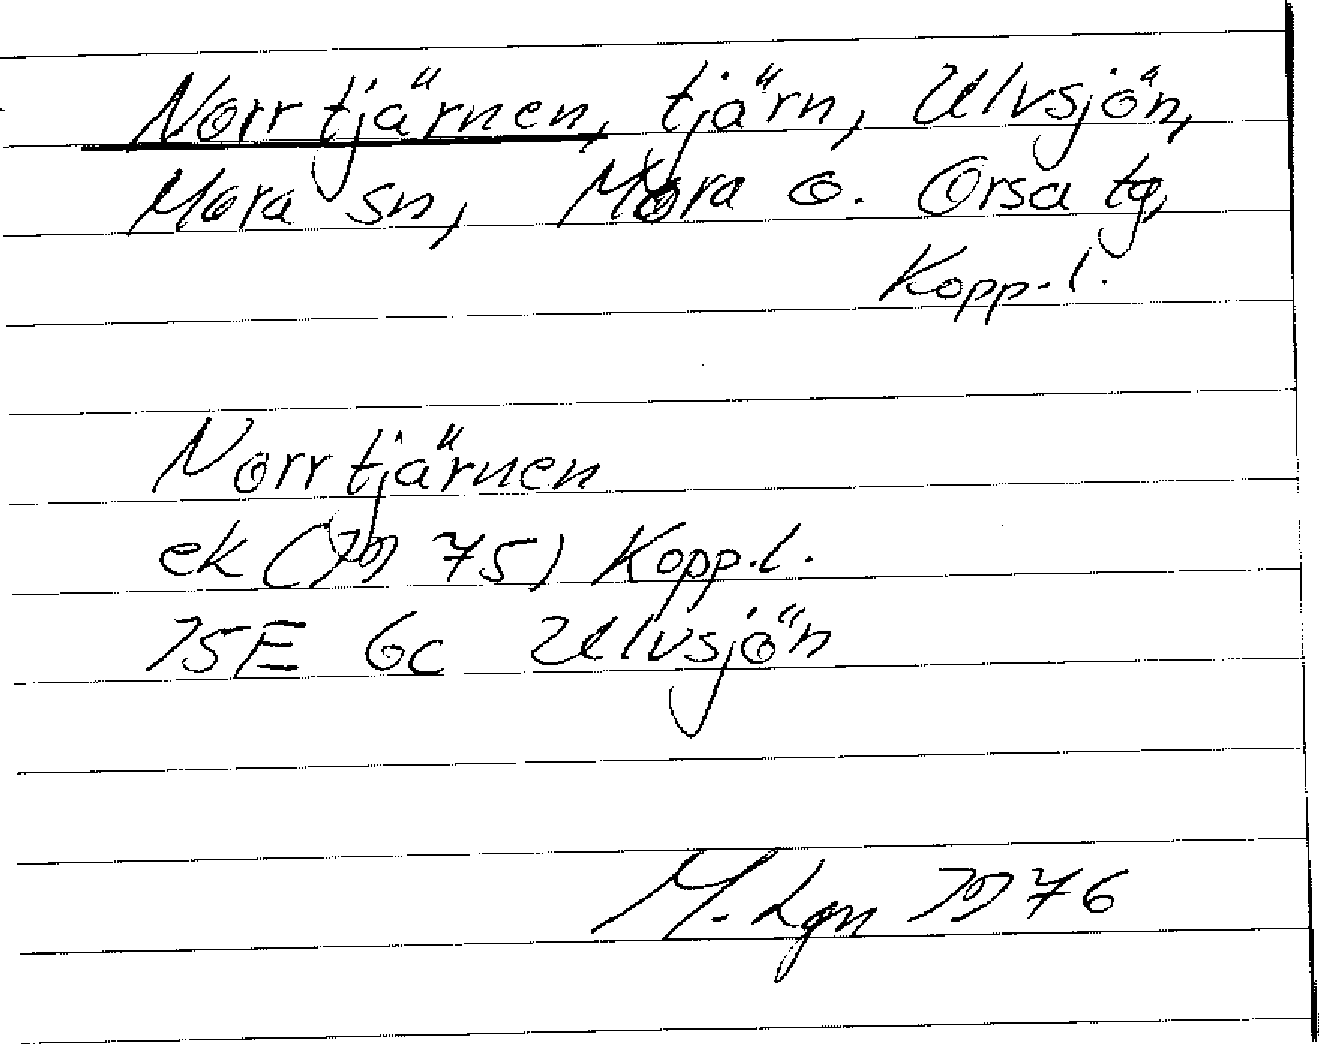 Norrtjärnen, tjärn, Ulvsjön,
Mora sn, Mora o. Orsa tg,
Kopp. l.
Norrtjärnen
ek (1975) Kopp. l.
15E 6c Ulvsjön
M. Lgn 1976